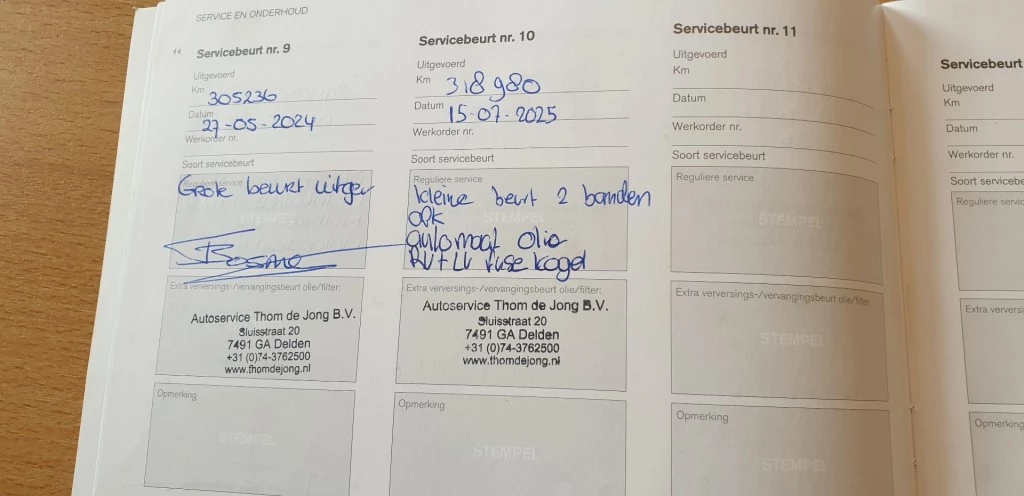 SERVICE EN ONDERHOUD
Servicebeurt nr. 9
Uitgevoerd
Km 305236
Datum 27-05-2024
Werkorder nr.
Soort servicebeurt
Reguliere service
Grote beurt uitgev
STEMPEL
Extra verversings-/vervangingsbeurt olie/filter:
Autoservice Thom de Jong B.V.
Sluisstraat 20
7491 GA Delden
+31 (0)74-3762500
www.thomdejong.nl
Opmerking
STEMPEL
Servicebeurt nr. 10
Uitgevoerd
Km 318980
Datum 15-07-2025
Werkorder nr.
Soort servicebeurt
Reguliere service
kleine beurt 2 banden
STEMPEL
APK
automaat olie
RV+LV fuse kogel
Extra verversings-/vervangingsbeurt olie/filter:
Autoservice Thom de Jong B.V.
Sluisstraat 20
7491 GA Delden
+31 (0)74-3762500
www.thomdejong.nl
Opmerking
STEMPEL
Servicebeurt nr. 11
Uitgevoerd
Km
Datum
Werkorder nr.
Soort servicebeurt
Reguliere service
STEMPEL
Extra verversings-/vervangingsbeurt olie/filter
STEMPEL
Opmerking
STEMPEL
Servicebeurt
Uitgevoerd
Km
Datum
Werkorder nr.
Soort servicebe
Reguliere servic
Extra verversi
Opmerking